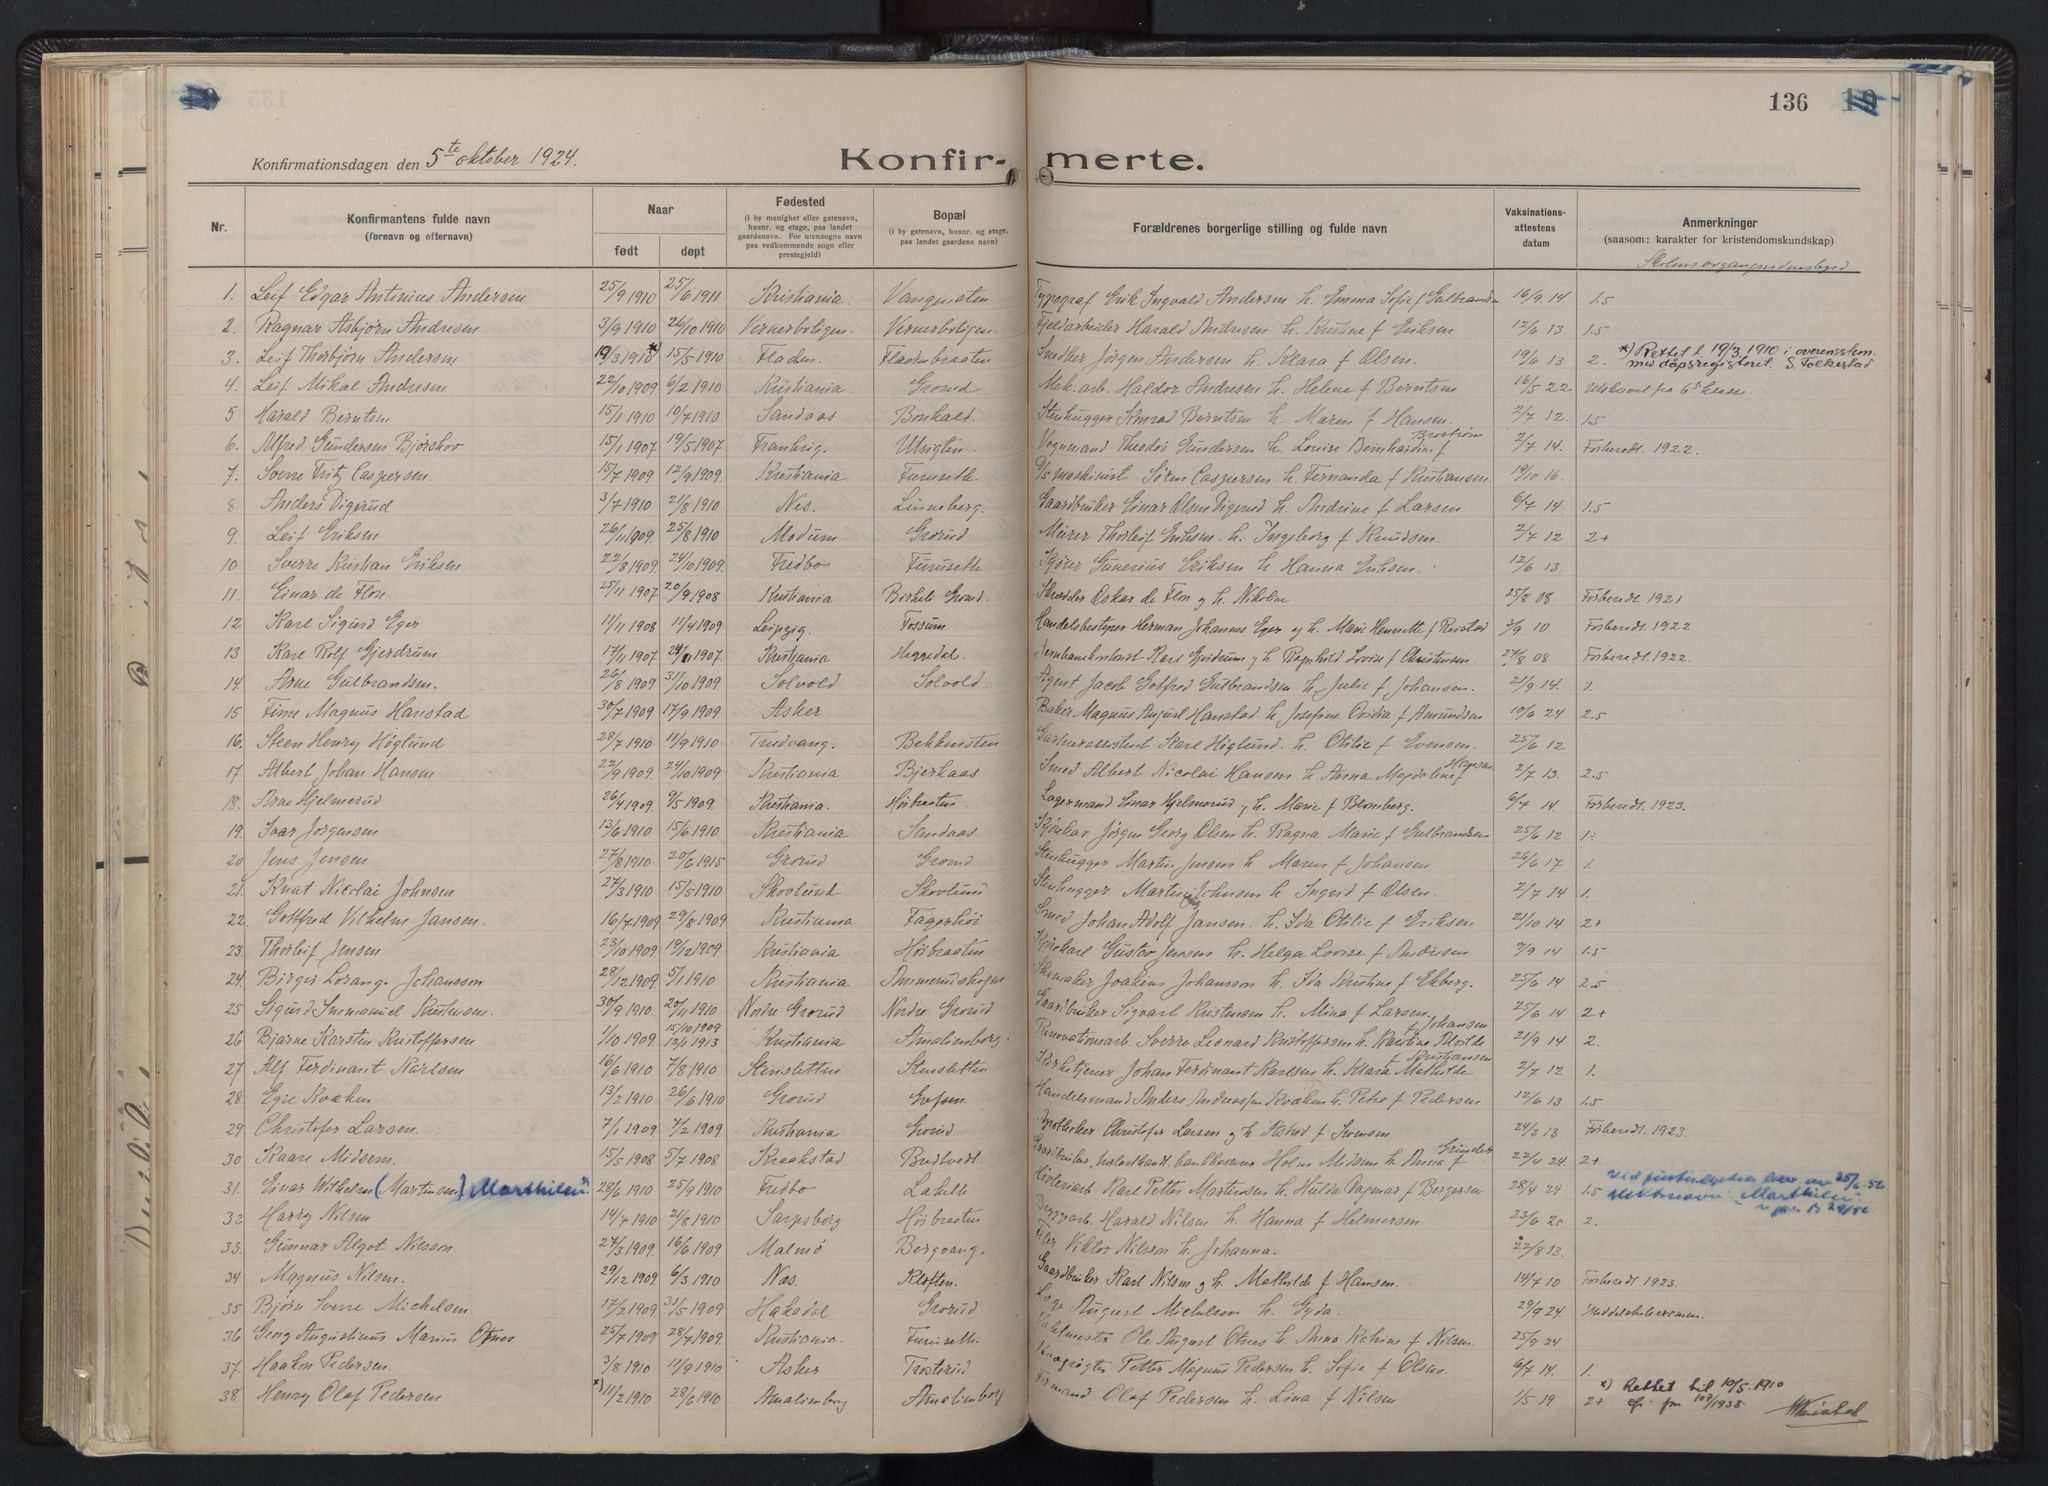 136
Konfirmationsdagen den 5te oktober 1924.
Konfir-merte.
Nr.
Konfirmantens fulde navn
(fornavn og efternavn)
Naar
født
døpt
Fødested
(i by menighet eller gatenavn, husnr. og etage, paa landet gaardsnavn. For utensogns navn paa vedkommende sogn eller prestegjeld)
Bopæl
(i by gatenavn, husnr. og etage, paa landet gaardens navn)
Forældrenes borgerlige stilling og fulde navn
Vaksinations-attestens datum
Anmerkninger
(saasom: karakter for kristendomskundskap)
1. Leif Edgar Antonius Andersen 25/9 1910 25/6 1911 Kristiania. Typograf Erik Ingvald Andersen h. Emma Sofie f Gulbrandsen 16/9 14. 1.5
2. Ragnar Asbjørn Andresen 3/9 1910 26/10 1910 Vernerboligen. Vernerboligen. Fjeldarbeider Harald Andresen h. Kristine f Eriksen 12/6 13. 1.5
3. Leif Thorbjørn Andersen 19/3 1910 *) 15/5 1910 Fladen. Fladenbraaten Snedker Jørgen Andersen h. Klara f Olsen. 19/6 13 2. *) Rettet t. 19/3 1910 i overensstem. med dåpsregisteret. S. Folkestad
4. Leif Mikal Andresen 22/10 1909 6/2 1910 Kristiania Grorud Mek. arb. Haldor Andresen h. Helene f Berntsen 16/5 22 Utskrevet fra 6te klasse.
5 Harald Berntsen 15/1 1910 10/7 1910 Sandaas Bonkald. Stenhugger Konrad Berntsen h. Maren f Hansen. 2/7 12. 1.5
6. Alfred Gundersen Bjørskov 15/1 1907 19/5 1907 Frankrig. Utsigten. Vognmand Theodor Gundersen h. Louise Bernhardine f Broström 2/7 14. Forberedt. 1922.
7. Sverre Fritz Caspersen. 15/7 1909 12/9 1909. Kristiania Furuseth. D/S maskinist Søren Caspersen h. Fernanda f Kristiansen. 19/10 16.
8 Anders Digerud 3/7 1910 21/8 1910 Nes. Linneberg. Gaardbruker Einar Olsen Digerud h. Andrine f Larsen 6/7 14 1.5
9. Leif Eriksen 26/11 1909. 25/8 1910 Modum Grorud Murer Thorleif Eriksen. h. Ingeborg f Knudsen. 2/7 12 2+
10 Sverre Kristian Eriksen 22/8 1909. 24/10 1909. Fredbo Furuseth Kjører Gunerius Eriksen h. Hanna Eriksen. 12/6 13.
11. Einar de Flon 25/11 1907 20/9 1908 Kristiania Birkeli Grorud. Skrædder Oskar de Flon og h. Nikoline 25/8 08 Forberedt 1921
12 Karl Sigurd Eger 11/11 1908 11/4 1909 Leipzig. Fossum Handelsbestyrer Herman Johannes Eger og h. Marie Henriette f 3/9 10. Forberedt. 1922
13 Kare Rolf Gjerdrum 17/11 1907 1907. Kristiania Heggedal. Karl Gjerdrum og h. Ragnhild Lovise f Christensen. 27/8 08 Forberedt. 1922.
14. Arne Gulbrandsen. 26/8 1909 31/10 1909 Solvold Solvold. Agent Jacob Gotfred Gulbrandsen h. Julie f Johansen. 21/9 14. 1.
15 Finn Magnus Hanstad 30/7 1909 17/9 1909. Asker Baker Magnus August Hanstad h. Josefine Ovidia f Amundsen 10/6 24 2.5
16. Steen Henry Høglund 28/7 1910 11/9 1910 Trudvang. Bekkensten Karl Höglund. h. Otilie f Evensen. 25/6 12
17. Albert Johan Hansen 22/9 1909. 24/10 1909 Kristiania Bjerkaas Smed Albert Nicolai Hansen h. Anna Magdaline f Hansen. 2/7 13. 2.5
18. Arne Hjelmerud 26/4 1909. 9/5 1909. Kristiania. Høibraaten. Lagermand Einar Hjelmerud og h. Marie f Blomberg. 6/7 14 Forberedt. 1923.
19. Ivar Jørgensen 13/6 1910 15/6 1910 Kristiania Sandaas Jørgen Georg Olsen h. Ragna Marie f Gulbrandsen 25/6 12 1÷
20 Jens Jensen 27/8 1910 20/6 1915 Grorud Grorud Stenhugger Martin Jensen h Maren f Johansen 26/6 17 1.
21. Knut Nicolai Johnsen 27/3 1910 15/5 1910 Skovlund Skovlund Stenhugger Martin Johnsen h Ingrid f Olsen. 2/7 14 1.
22. Gottfred Vilhelm Jansen. 16/7 1909 29/8 1909 Kristiania Fagerhøi Smed Johan Adolf Jansen. h. Ida Otilie f Eriksen 21/10 14 2+
23. Thorleif Jensen 23/10 1909 19/12 1909 Kristiania Høibraaten Gustav Jensen h. Helga Lovise f Andresen 9/9 14 1.5
24. Birger Lorang Johansson 28/12 1909. 5/1 1910 Kristiania Ammerudskogen Skomaker Joakim Johansson h. Ida Kristine f Ekberg. 25/6 14 2.5
25 Sigurd Immanuel Kristensen. 30/9 1910 20/11 1910 Nordre Grorud Nordre Grorud Gaardbruker Sigvart Kristensen h. Mina f Larsen. 25/6 14 2+
26 Bjarne Karsten Kristoffersen 1/10 1909. 15/10 1909 12/1 1913 Kristiania Amalienborg. Renovationsarb. Sverre Leonard Kristoffersen h. Karoline Klotilde f Johansen 21/9 14 2.
27 Alf Ferdinant Karlsen 16/6 1910 7/8 1910 Stensletten Stensletten Kirketjener Johan Ferdinant Karlsen h. Klara Mathilde f Kristiansen 2/7 12 1.
28 Egil Kvæken 13/2 1910 26/6 1910 Grorud Grefsen. Handelsmand Anders Andreassen Kvæken h. Petra f Pedersen 12/6 13 1.5
29 Christofer Larsen. 7/1 1909. 7/2 1909 Kristiania Grorud Christofer Larsen og h Astrid f 24/3 13. Forberedt. 1923.
30 Kaare Midsem. 15/5 1908 5/7 1908 Kraakstad Bredtvedt. Holm Midsem h. Anna f Grinder 22/4 24. 2+
31. Einar Wilhelm (Martinsen) Marthilin 28/6 1910 25/9 1910 Fredbo Lakelle Karl Petter Martinsen h. Hulda Dagmar f Bergersen 28/4 24 1.5 slektsnavn: Marthilin.
32 Harry Nilsen 14/7 1910 21/8 1910 Sarpsborg Høibraaten Harald Nilsen h. Hanna f Helmersen 23/6 20 2.
33. Gunnar Algot Nilsson. 27/3 1909. 16/6 1909 Malmø Bergvang. Filer Viktor Nilsson h. Johanna. 22/8 13.
34 Magnus Nilsen. 29/12 1909. 6/3 1910 Nes. Kløften. Gaardbruker Karl Nilsen og h. Mathilde f Hansen. 14/7 10 Forberedt 1923.
35 Bjørn Sverre Michelsen. 17/2 1909. 31/5 1909 Hakadal Grorud August Michelsen h. Gyda. 29/9 24. Middelskoleeksamen.
36 Georg Augustinus Marius Otnes 25/7 1909 28/7 1909. Kristiania. Furuseth. Ole August Otnes h. Anna Katrine f Nilsen. 25/9 24
37. Haakon Pedersen. 3/8 1910 11/9 1910 Asker Trosterud Petter Magnus Pedersen h. Sofie f Olsen. 6/7 14. 1.
38 Henry Olaf Pedersen *) 11/2 1910 28/6 1910 Amalienborg Amalienborg Formand Olaf Pedersen h. Lina f Nilsen 1/5 19 2+ *) Rettet til 10/5 1910